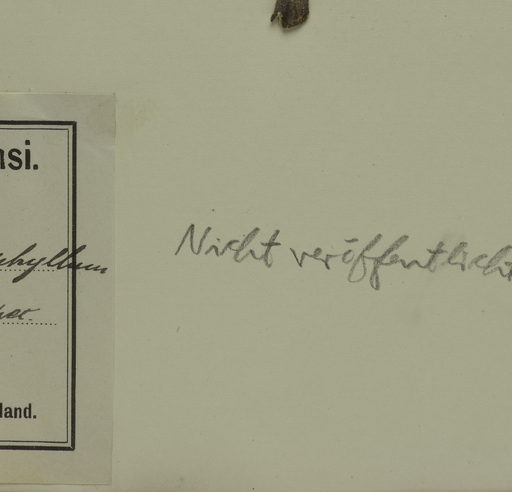 nsi.
phyllum
land.
Nicht veröffentlicht